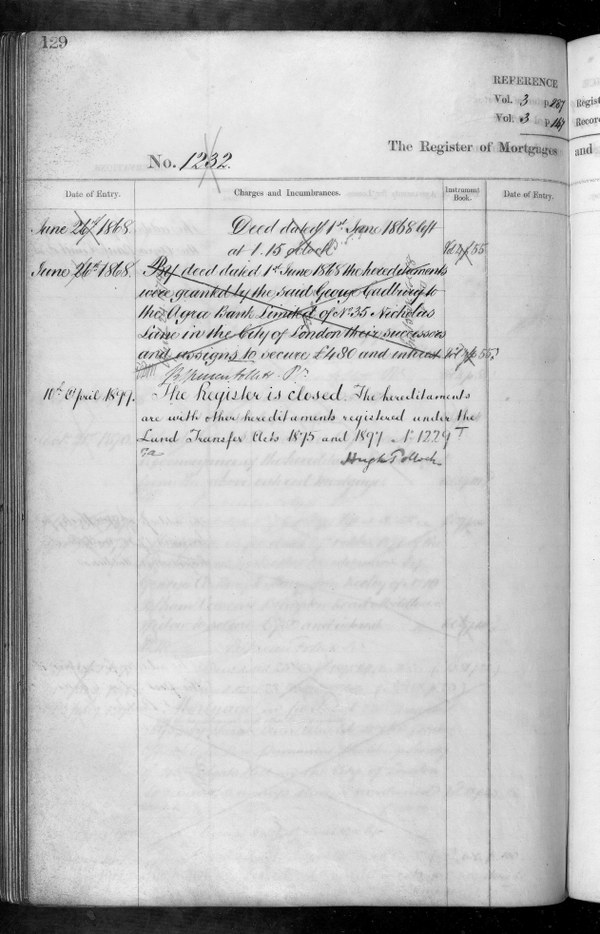 129
REFERENCE
Vol. 3 p. 287
Vol. 3 p. 167
Regist
Recor
The Register of Mortgages
and
No. 1232.
Date of Entry.
Charges and Incumbrances.
Instrument Book.
Date of Entry.
June 26th 1868
Deed dated 1st June 1868 left
at 1.15 o'clock
55
June 26th 1868.
By deed dated 1st June 1868 the hereditaments
were granted by the said George
to
the Agra Bank Limited of No. 35 Nicholas
Lane in the City of London their successors
and assigns to secure £480 and interest
55.
10th April 1899.
The Register is closed. The hereditaments
are with other hereditaments registered under the
Land Transfer Acts 1875 and 1897
No. 1229
Hugh Pollock